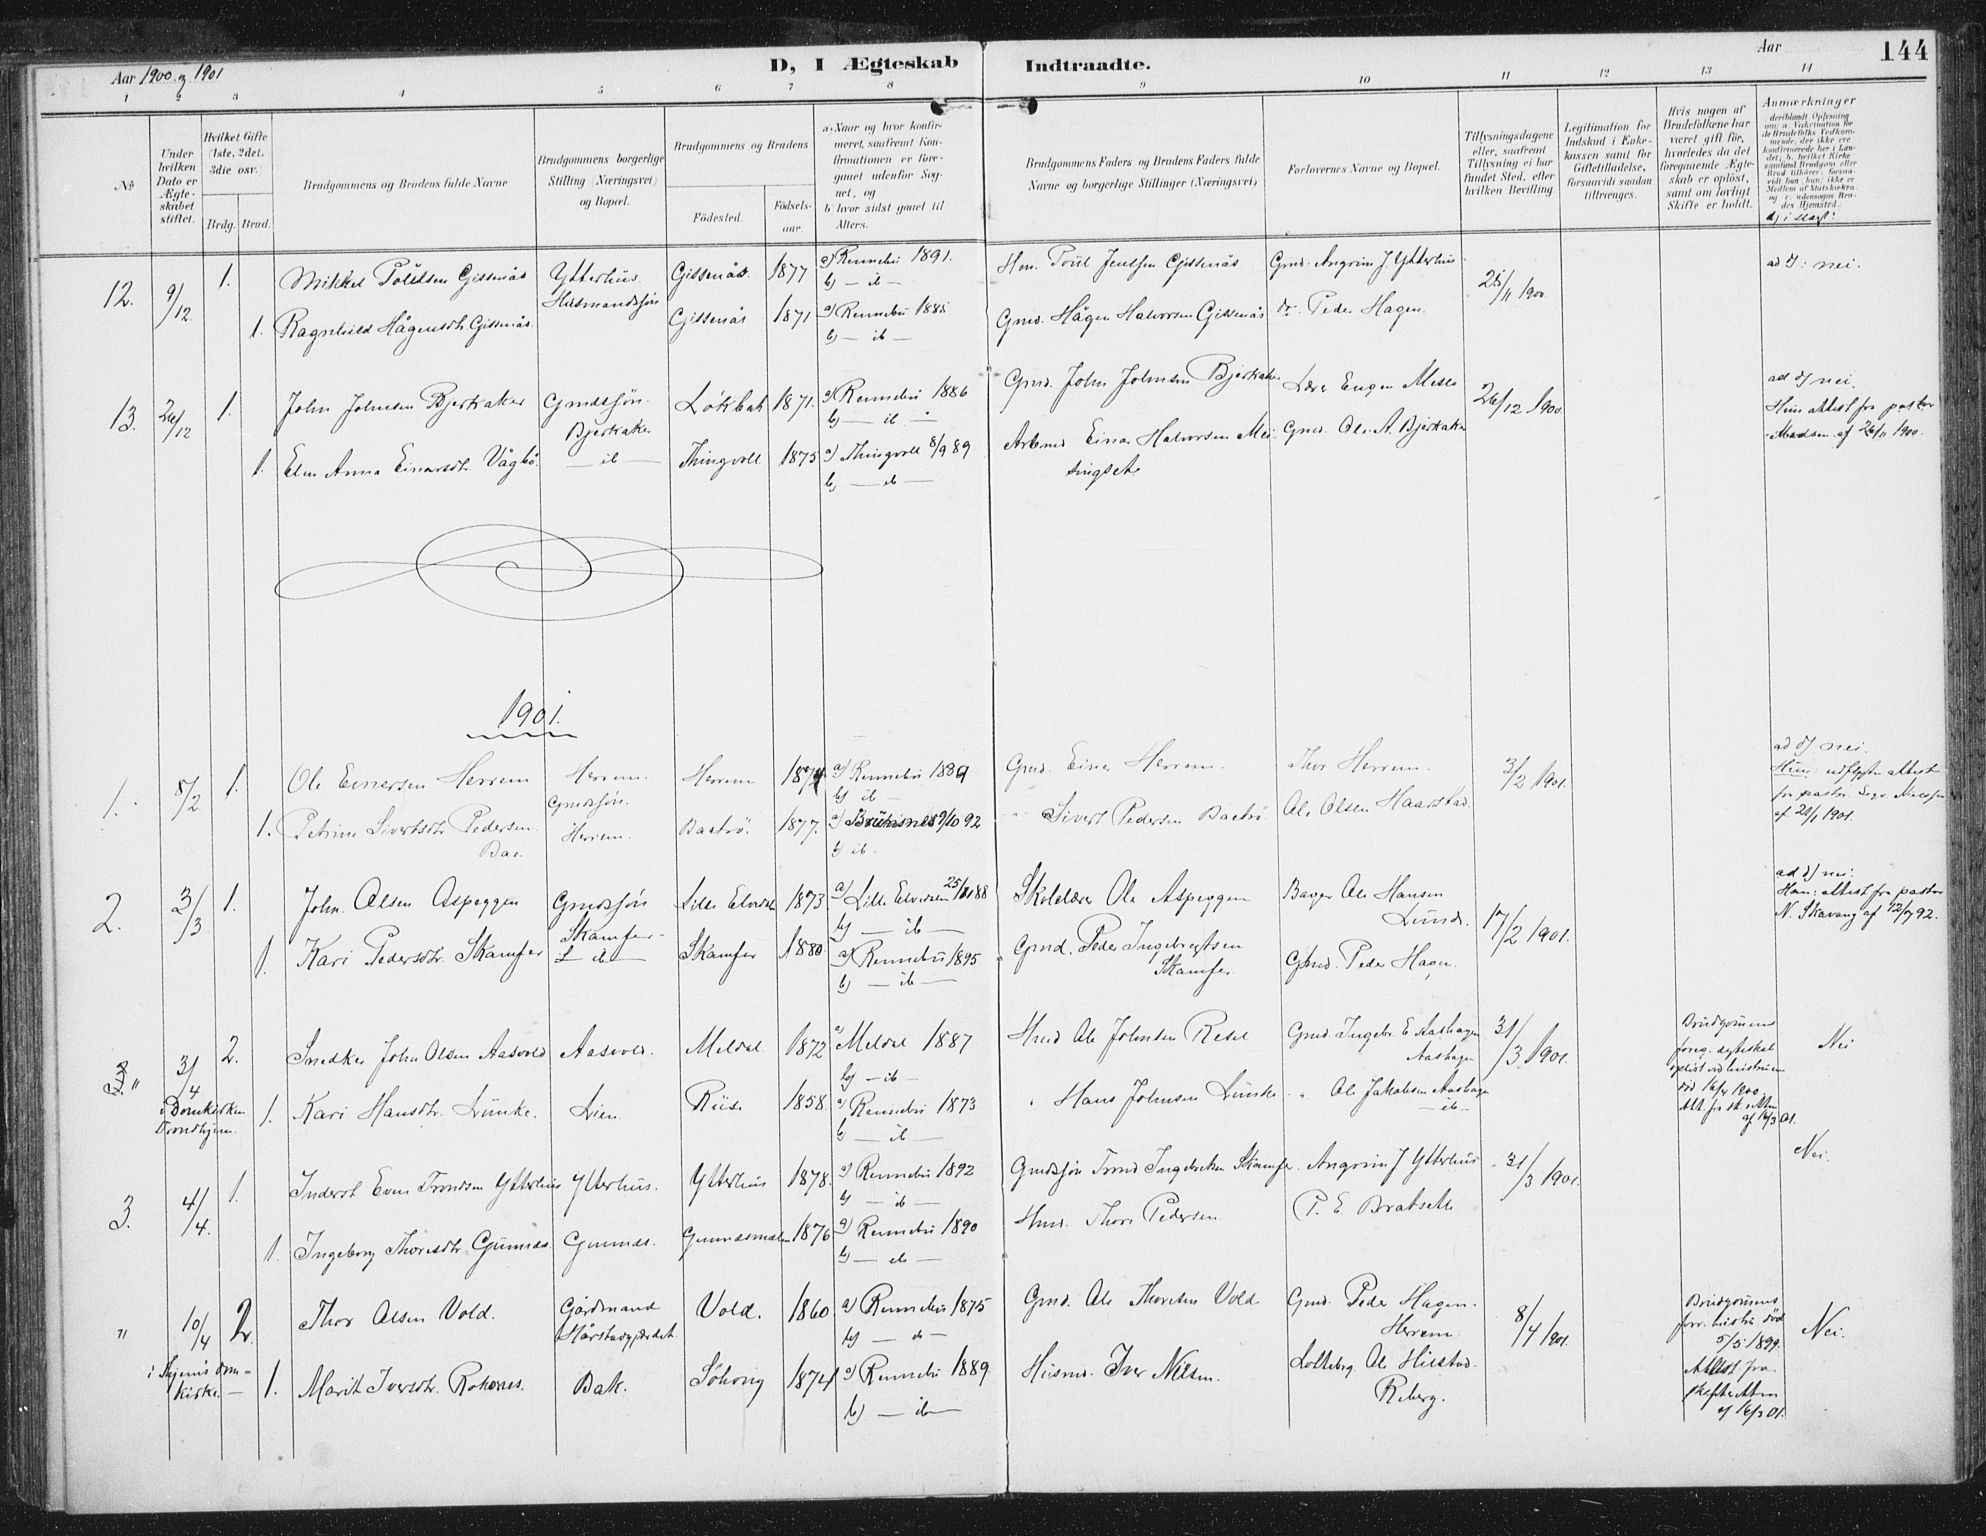 Aar 1900 og 1901
D, I Ægteskab Indtraadte.
Aar
144
1 2 3 4 5 6 7 8 9 10 11 12 13 14
No
Under hvilken Dato er Ægteskabet stiftet.
Hvilket Gifte (1ste, 2det, 3die osv.)
Brdg. Brud.
Brudgommens og Brudens fulde Navne
Brudgommens borgerlige Stilling (Næringsvei) og Bopæl.
Brudgommens og Brudens
Fødested.
Fødselsaar.
a) Naar og hvor konfirmeret, saafremt Konfirmationen er foregaaet udenfor Sognet, og
b) hvor sidst gaaet til Alters.
Brudgommens Faders og Brudens Faders fulde Navne og borgerlige Stillinger (Næringsvei)
Forlovernes Navne og Bopæl.
Tillysningsdagene eller, saafremt Tillysning ei har fundet Sted, efter hvilken Bevilling
Legitimation for Indskud i Enkekassen samt for Giftetilladelse, forsaavidt saadan tiltrænges.
Hvis nogen af Brudefolkene har været gift før, hvorledes da det foregaaende Ægteskab er opløst, samt om lovligt Skifte er holdt.
Anmærkninger
deriblandt Oplysning om: a. Vakcination for de Brudefolks Vedkommende, der ikke ere konfirmerede her i Landet; b. hvilket Kirkesamfund Brudgom eller Brud tilhører, forsaavidt han/hun ikke er Medlem af Statskirken, og c. udensogns Brudes Hjemsted.
d) i slægt?
12. 9/12 1. Mikkel Gissenås Ytterhus Gissenås 1877 a) Rennebu 1891. Hm. Jensen Gissenås Gmd. Angrim J Ytterhus 25/11 1900 ad d: nei.
Husmandssøn b) — ib —
1. Ragnhild Hågensdtr Gissenås Gissenås 1871 a) Rennebu 1885 Gmd. Hågen Halvorsen Gissenås do. Peder Hagen.
b) — ib —
13. 26/12 1. John Johnsen Bjerkaker Gmdssøn. Løkbak 1871. a) Rennebu 1886 Gmd. John Johnsen Bjerkaker Lærer Eugen 26/12 1900 ad d) nei.
Bjerkaker b) — ib — Hun attest fra pastor
1. Elen Anna Einarsdtr Vågbø — ib — Thingvoll 1875 a) Thingvoll 8/9 89 Arbmd Einar Halvorsen Mei- Gmd. Ole A. Bjerkaker Madsen af 26/11 1900.
b) — ib — singset
1901.
1. 8/2 1. Ole Einersen Herrem Herrem. Herrem 1874 a) Rennebu 1889 Gmd. Einer Herrem. Thor Herrem. 3/2 1901. ad d) nei.
Gmdssøn. b) ib — Hun: udflyttn attest
1. Petrine Sivertsdtr Pedersen Herrem. 1877. a) 9/10 92 Sivert Pedersen Ole Olsen Haarstad fra pastor
b) ib. af 28/1 1901.
2. 3/3 1. John Olsen Aspeggen Gmdssøn Lille Elvedal 1873 a) Lille Elvedalen 25/ 88 Skolelærer Ole Aspeggen Bager Ole Hansen Lund. 17/2 1901. ad d) nei:
Skamfer b) — ib — Han: attest fra pastor
1. Kari Pedersdtr. Skamfer — ib — Skamfer 1880 a) Rennebu 1895 Gmd. Peder Ingebregtsen Skamfer Gmd. Peder Hagen. N. Skavang af 12/7 92.
b) — ib —
3. " 31/4 2. Snedker John Olsen Aasvold Aasvold. Meldal 1872 a) Meldal 1887 Hmd Ole Johnsen Resel Gmd. Ingebr. E Aashagen 31/3 1901. Brudgomens Nei
b) — ib — Aashagen foreg. ægteskab
i Domkirken Trondhjem. 1. Kari Hansdtr. Lunke. Lien Riise 1858. a) Rennebu 1873 " Hans Johnsen Lunke " Ole Jakobsen Aashagen opløst ved hustruen
b) — ib — — ib — død 16/4 1900.
Att. fra sk.retten af 16/3 01.
3. 4/4. 1. Inderst Even Trondsen Ytterhus Ytterhus. Ytterhus 1878. a) Rennebu 1892 Gmdssøn Trond Ingebretsen Skamfer. Angrim J Ytterhus 31/3 1901. Nei.
b) — ib —
1. Ingeborg Thoresdtr. Gunnes. Gunnes. 1876 a) Rennebu 1890 Hmd. Thore Pedersen P. E Bratset
b) — ib —
" 10/4 2. Thor Olsen Vold. Gårdmand Vold. 1860 a) Rennebu 1875 Gmd. Ole Thoresen Vold Gmd. Peder Hagen. 8/4 1901. Brudgomens Nei.
Hårstadgjærdet b) — ib — Herrem. forr. hustru død
5/5 1899.
i Thjems Dom- kirke. — 1. Marit Iversdtr. Roksnes. Bak. 1874 a) Rennebu 1889 Husmd. Iver Nilsen. Ole Reberg. Attest fra
b) — ib — skifteretten
af 16/3 01.